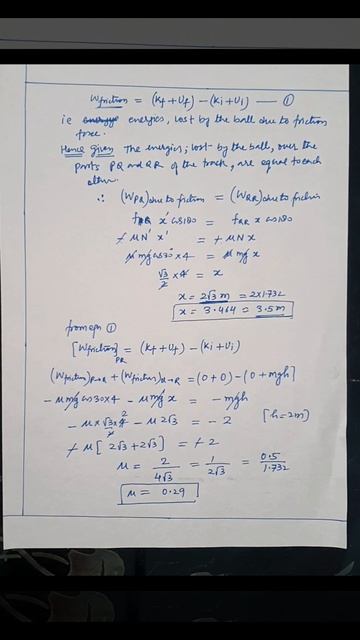 Wfriction = (Kf+Uf) – (Ki+Ui) — ①
ie energies, lost by the ball due to friction
force.
Hence given The energies, lost by the ball, over the
parts PQ and QR of the track, are equal to each
other
∴ (WPQ)due to friction = (WQR)due to friction
x' cos180 = fQR x cos180
+ μN' x' = + μN x
μ mg cos30° × 4 = μ mg x
√3/2 × 4 = x
x = 2√3 m = 2×1.732
x = 3.464 = 3.5m
from eqn ①
[Wfriction]PR = (Kf+Uf) – (Ki+Ui)
(Wfriction)P→Q + (Wfriction)Q→R = (0+0) – (0+mgh]
– μ mg cos30 × 4 – μ mg x = –mgh
– μ × √3/2 × 4 2 – μ 2√3 = – 2 [h=2m]
+ μ [2√3 + 2√3] = + 2
μ = 2/4√3 = 1/2√3 = 0.5/1.732
μ = 0.29